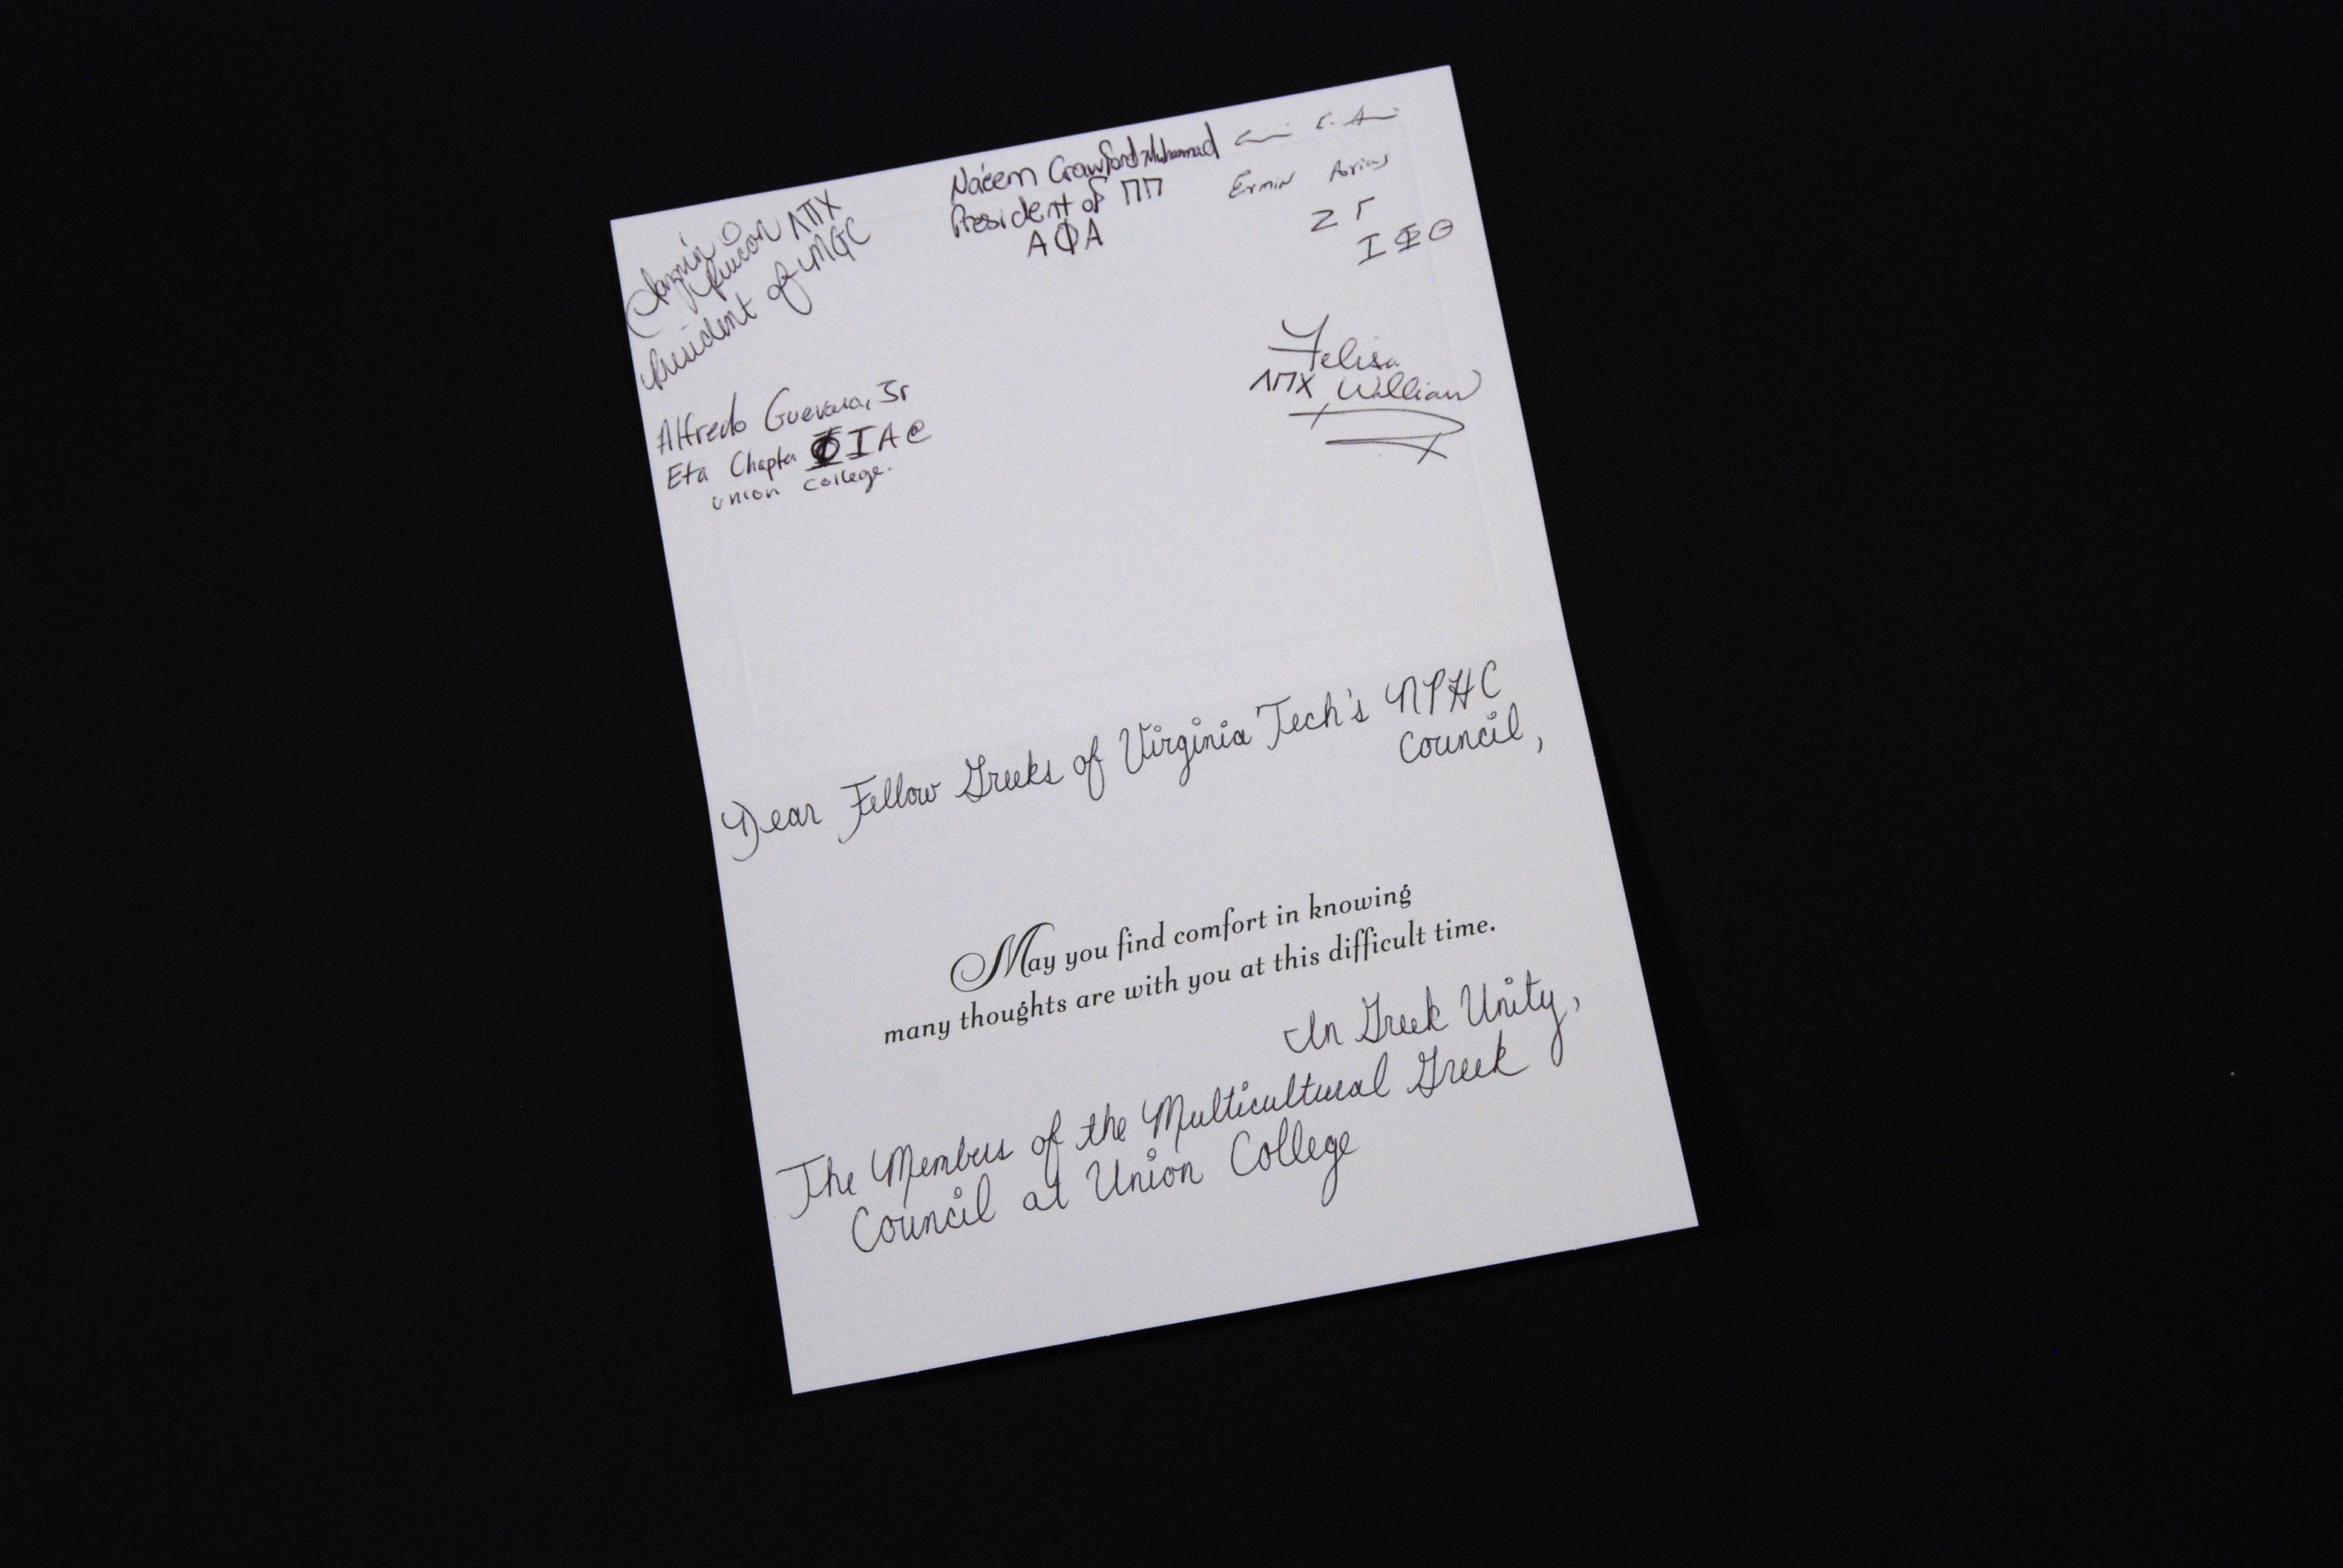 Rincon ΛΠΧ
President of MGC
Naéem Crawford-Muhammad
President of ΠΠ
ΑΦΑ
Ermin Arias
Ζ Γ
Ι Φ Θ
Felisa
ΛΠΧ William
Alfredo Guevara, Jr
Eta Chapter ΦΙΑ @
union college.
Dear Fellow Greeks of Virginia Tech's NPHC
Council,
May you find comfort in knowing
many thoughts are with you at this difficult time.
In Greek Unity,
The Members of the Multicultural Greek
Council at Union College